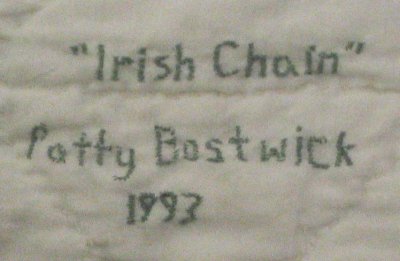 "Irish Chain"
Patty Bostwick
1993